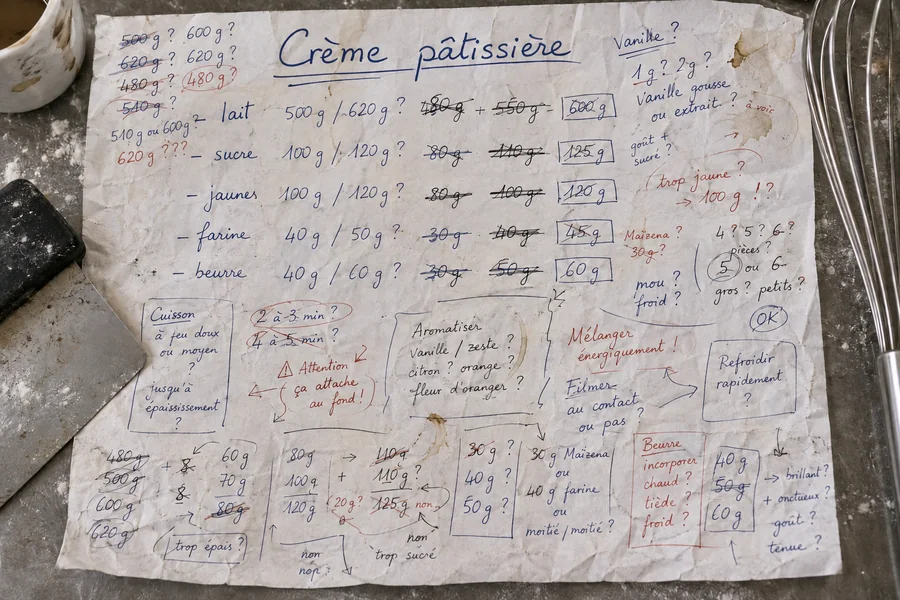 Crème pâtissière
500 g ? 600 g ?
620 g ? 620 g ?
480 g ? 480 g ?
510 g ?
510 g ou 600 g ?
620 g ???
– lait 500 g / 620 g ? 480 g + 550 g – 600 g
– sucre 100 g / 120 g ? 80 g 110 g 125 g
– jaunes 100 g / 120 g ? 80 g 100 g 120 g
– farine 40 g / 50 g ? 30 g 40 g 45 g
– beurre 40 g / 60 g ? 30 g 50 g 60 g
Vanille ?
1 g ? 2 g ?
Vanille gousse
ou extrait ?
à voir
→
goût +
sucré ?
trop jaune ?
→ 100 g !?
Maïzena ?
30 g ?
mou ?
froid ?
4 ? 5 ? 6 ?
pièces ?
5 ou 6
gros ? petits ?
OK
Cuisson
à feu doux
ou moyen
?
jusqu'à
épaississement
?
2 à 3 min ?
4 à 5 min ?
⚠ Attention
ça attache
au fond !
Aromatiser
vanille / zeste ?
citron ? orange ?
fleur d'oranger ?
Mélanger
énergiquement !
Filmer
au contact
ou pas ?
Refroidir
rapidement
?
480 g
500 g
600 g
620 g
+ 8
8
→
60 g
70 g
80 g
trop épais ?
80 g → 110 g
100 g + 110 g ?
120 g 125 g
20 g ?
non
non
nop ?
non
trop sucré
30 g ?
40 g ?
50 g ?
30 g Maïzena
ou
40 g farine
ou
moitié / moitié ?
Beurre
incorporer
chaud ?
tiède ?
froid ?
40 g
50 g
60 g
→ brillant ?
+ onctueux ?
goût ?
tenue ?